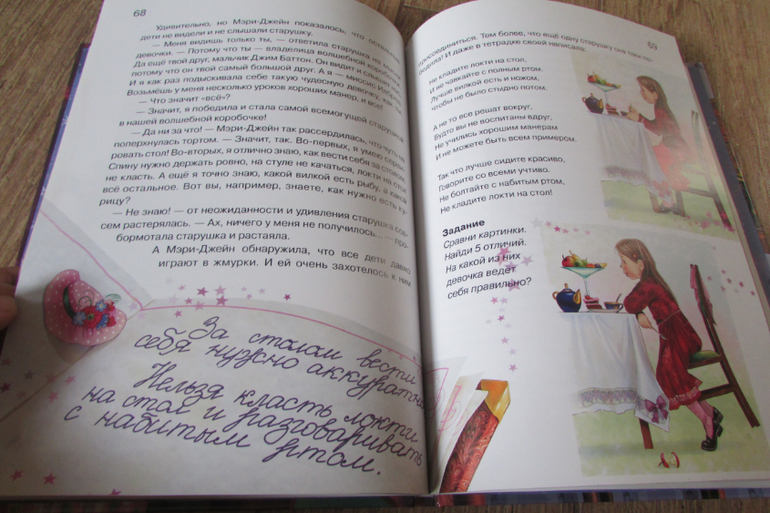 68
Удивительно, но Мэри-Джейн показалось, что остальные
дети не видели и не слышали старушку.
— Меня видишь только ты, — ответила старушка на мысли
девочки. — Потому что ты — владелица волшебной коробочки!
Да ещё твой друг, мальчик Джим Баттон. Он видит и слышит,
потому что он твой самый большой друг. А я — миссис
И я как раз подыскивала себе такую чудесную девочку, как ты.
Возьмёшь у меня несколько уроков хороших манер, и всё!
— Что значит «всё»?
— Значит, я победила и стала самой всемогущей старушкой
в нашей волшебной коробочке!
— Да ни за что! — Мэри-Джейн так рассердилась, что чуть не
поперхнулась тортом. — Значит, так. Во-первых, я умею
ровать стол! Во-вторых, я отлично знаю, как вести себя за столом.
Спину нужно держать ровно, на стуле не качаться, локти на стол
не класть. А ещё я точно знаю, какой вилкой есть рыбу, а какой
всё остальное. Вот вы, например, знаете, как нужно есть ку-
рицу?
— Не знаю! — от неожиданности и удивления старушка сов-
сем растерялась. — Ах, ничего у меня не получилось... — про-
бормотала старушка и растаяла.
А Мэри-Джейн обнаружила, что все дети давно
играют в жмурки. И ей очень захотелось к ним
За столом вести
себя нужно аккуратно.
Нельзя класть локти
на стол и разговаривать
с набитым ртом.
69
присоединиться. Тем более, что ещё одну старушку она
И даже в тетрадке своей написала:
Не кладите локти на стол,
И не чавкайте с полным ртом.
Лучше вилкой есть и ножом,
Чтобы не было стыдно потом.
А не то все решат вокруг,
Будто вы не воспитаны вдруг,
Не учились хорошим манерам
И не можете быть всем примером.
Так что лучше сидите красиво,
Говорите со всеми учтиво,
Не болтайте с набитым ртом,
Не кладите локти на стол!
Задание
Сравни картинки.
Найди 5 отличий.
На какой из них
девочка ведёт
себя правильно?